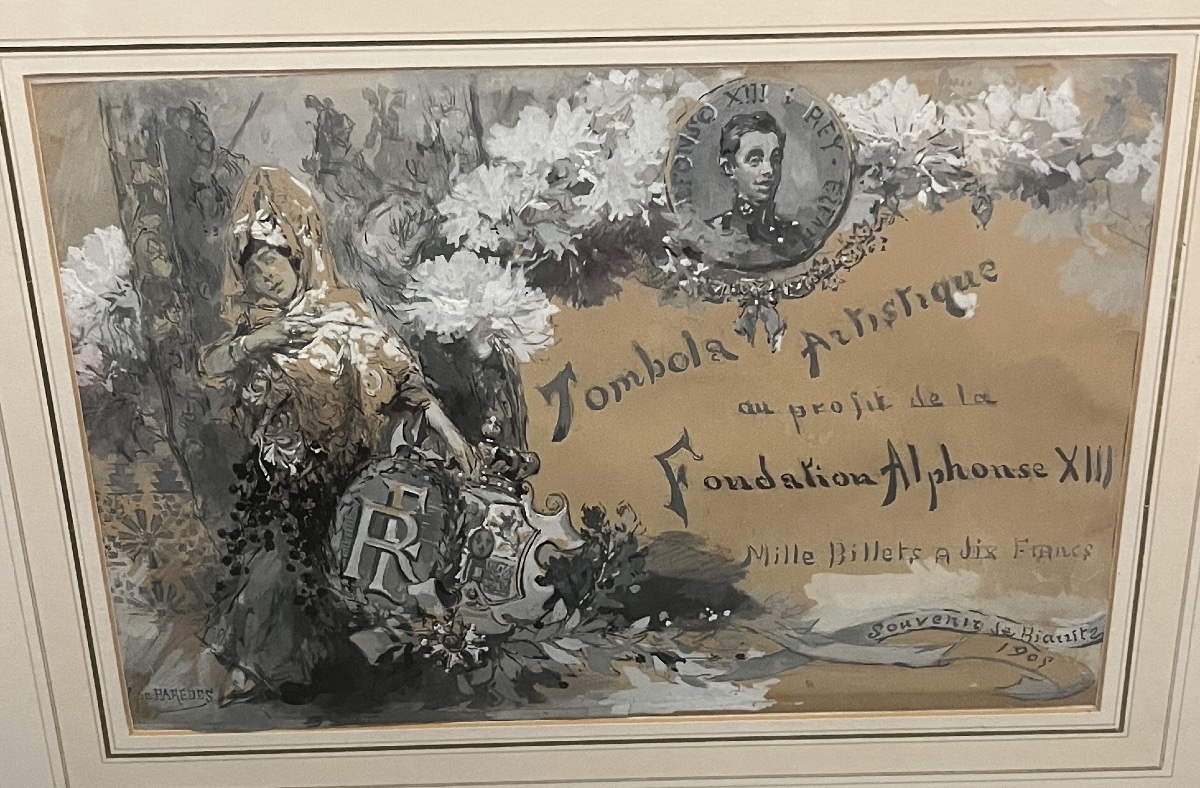 ALFONSO XIII i REY · 
Tombola Artistique
au profit de la
Fondation Alphonse XIII
Mille Billets a dix Francs
Souvenir de Biarritz
190
FR
de PAREDES